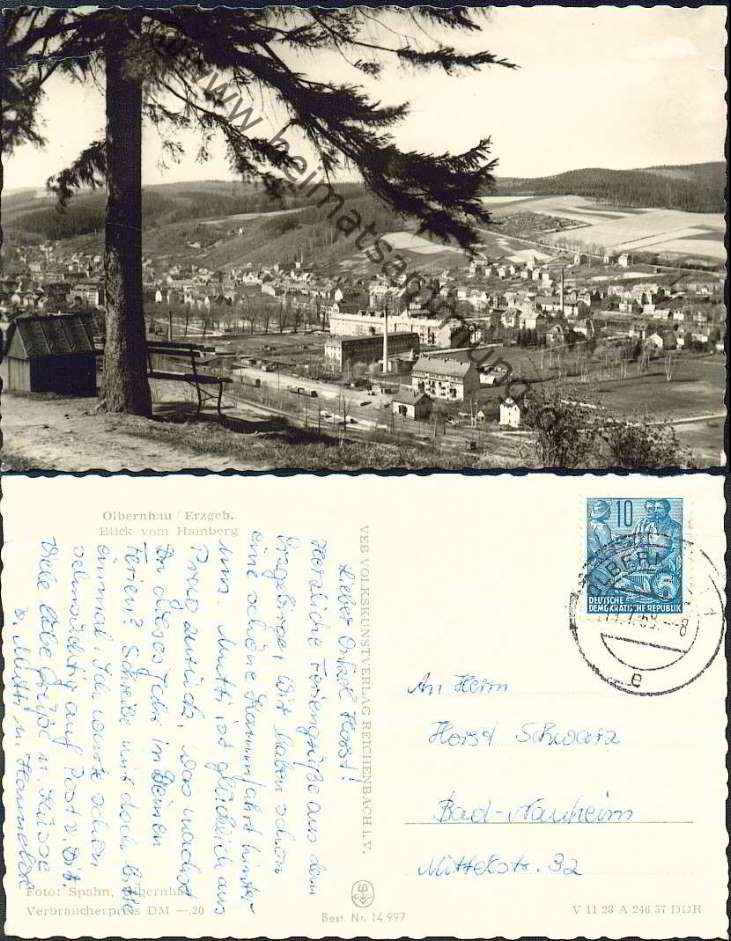 www.heimatsammlung.de
Olbernhau / Erzgeb.
Blick vom Hainberg
Lieber Onkel Horst!
Herzliche Feriengrüße aus dem
Erzgebirge. Wir haben schon
eine schöne Kammfahrt hinter
uns. Mutti ist glücklich aus
Prag zurück. Was machst
Du dieses Jahr in Deinen
Ferien? Schreibe uns doch bitte
einmal. Ich warte schon
sehnsüchtig auf Post v. Dir.
Viele liebe Grüße u. Küsse
v. Mutti u. Hannelore
VEB VOLKSKUNSTVERLAG REICHENBACH i.V.
10
DEUTSCHE
DEMOKRATISCHE REPUBLIK
An Herrn
Horst Schwarz
Bad-Nauheim
Mittelstr. 32
Foto: Spahn, Olbernhau
Verbraucherpreis DM —.20
Best. Nr. 14.997
V 11 28 A 246 57 DDR